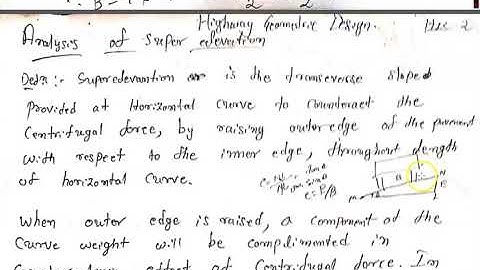 Highway Geometric Design.
Analysis of super elevation
Defn :- Superelevation is the transverse slope
provided at Horizontal Curve to Counteract the
Centrifugal force, by raising outer edge of the pavement
with respect to the inner edge, throughout length
of horizontal Curve.
When outer edge is raised, a component of the
Curve weight will be complimented in
effect of Centrifugal force. In